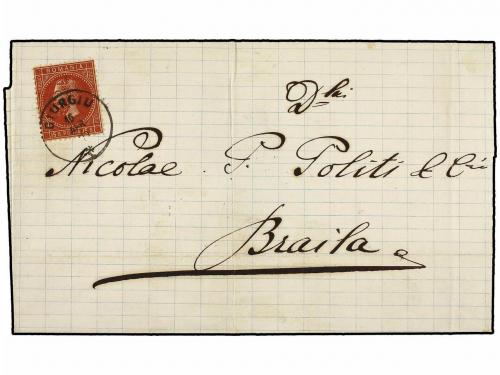 ROMANIA
GIURGIU
Dlui
Nicolae P. Politi & Cie
Braila